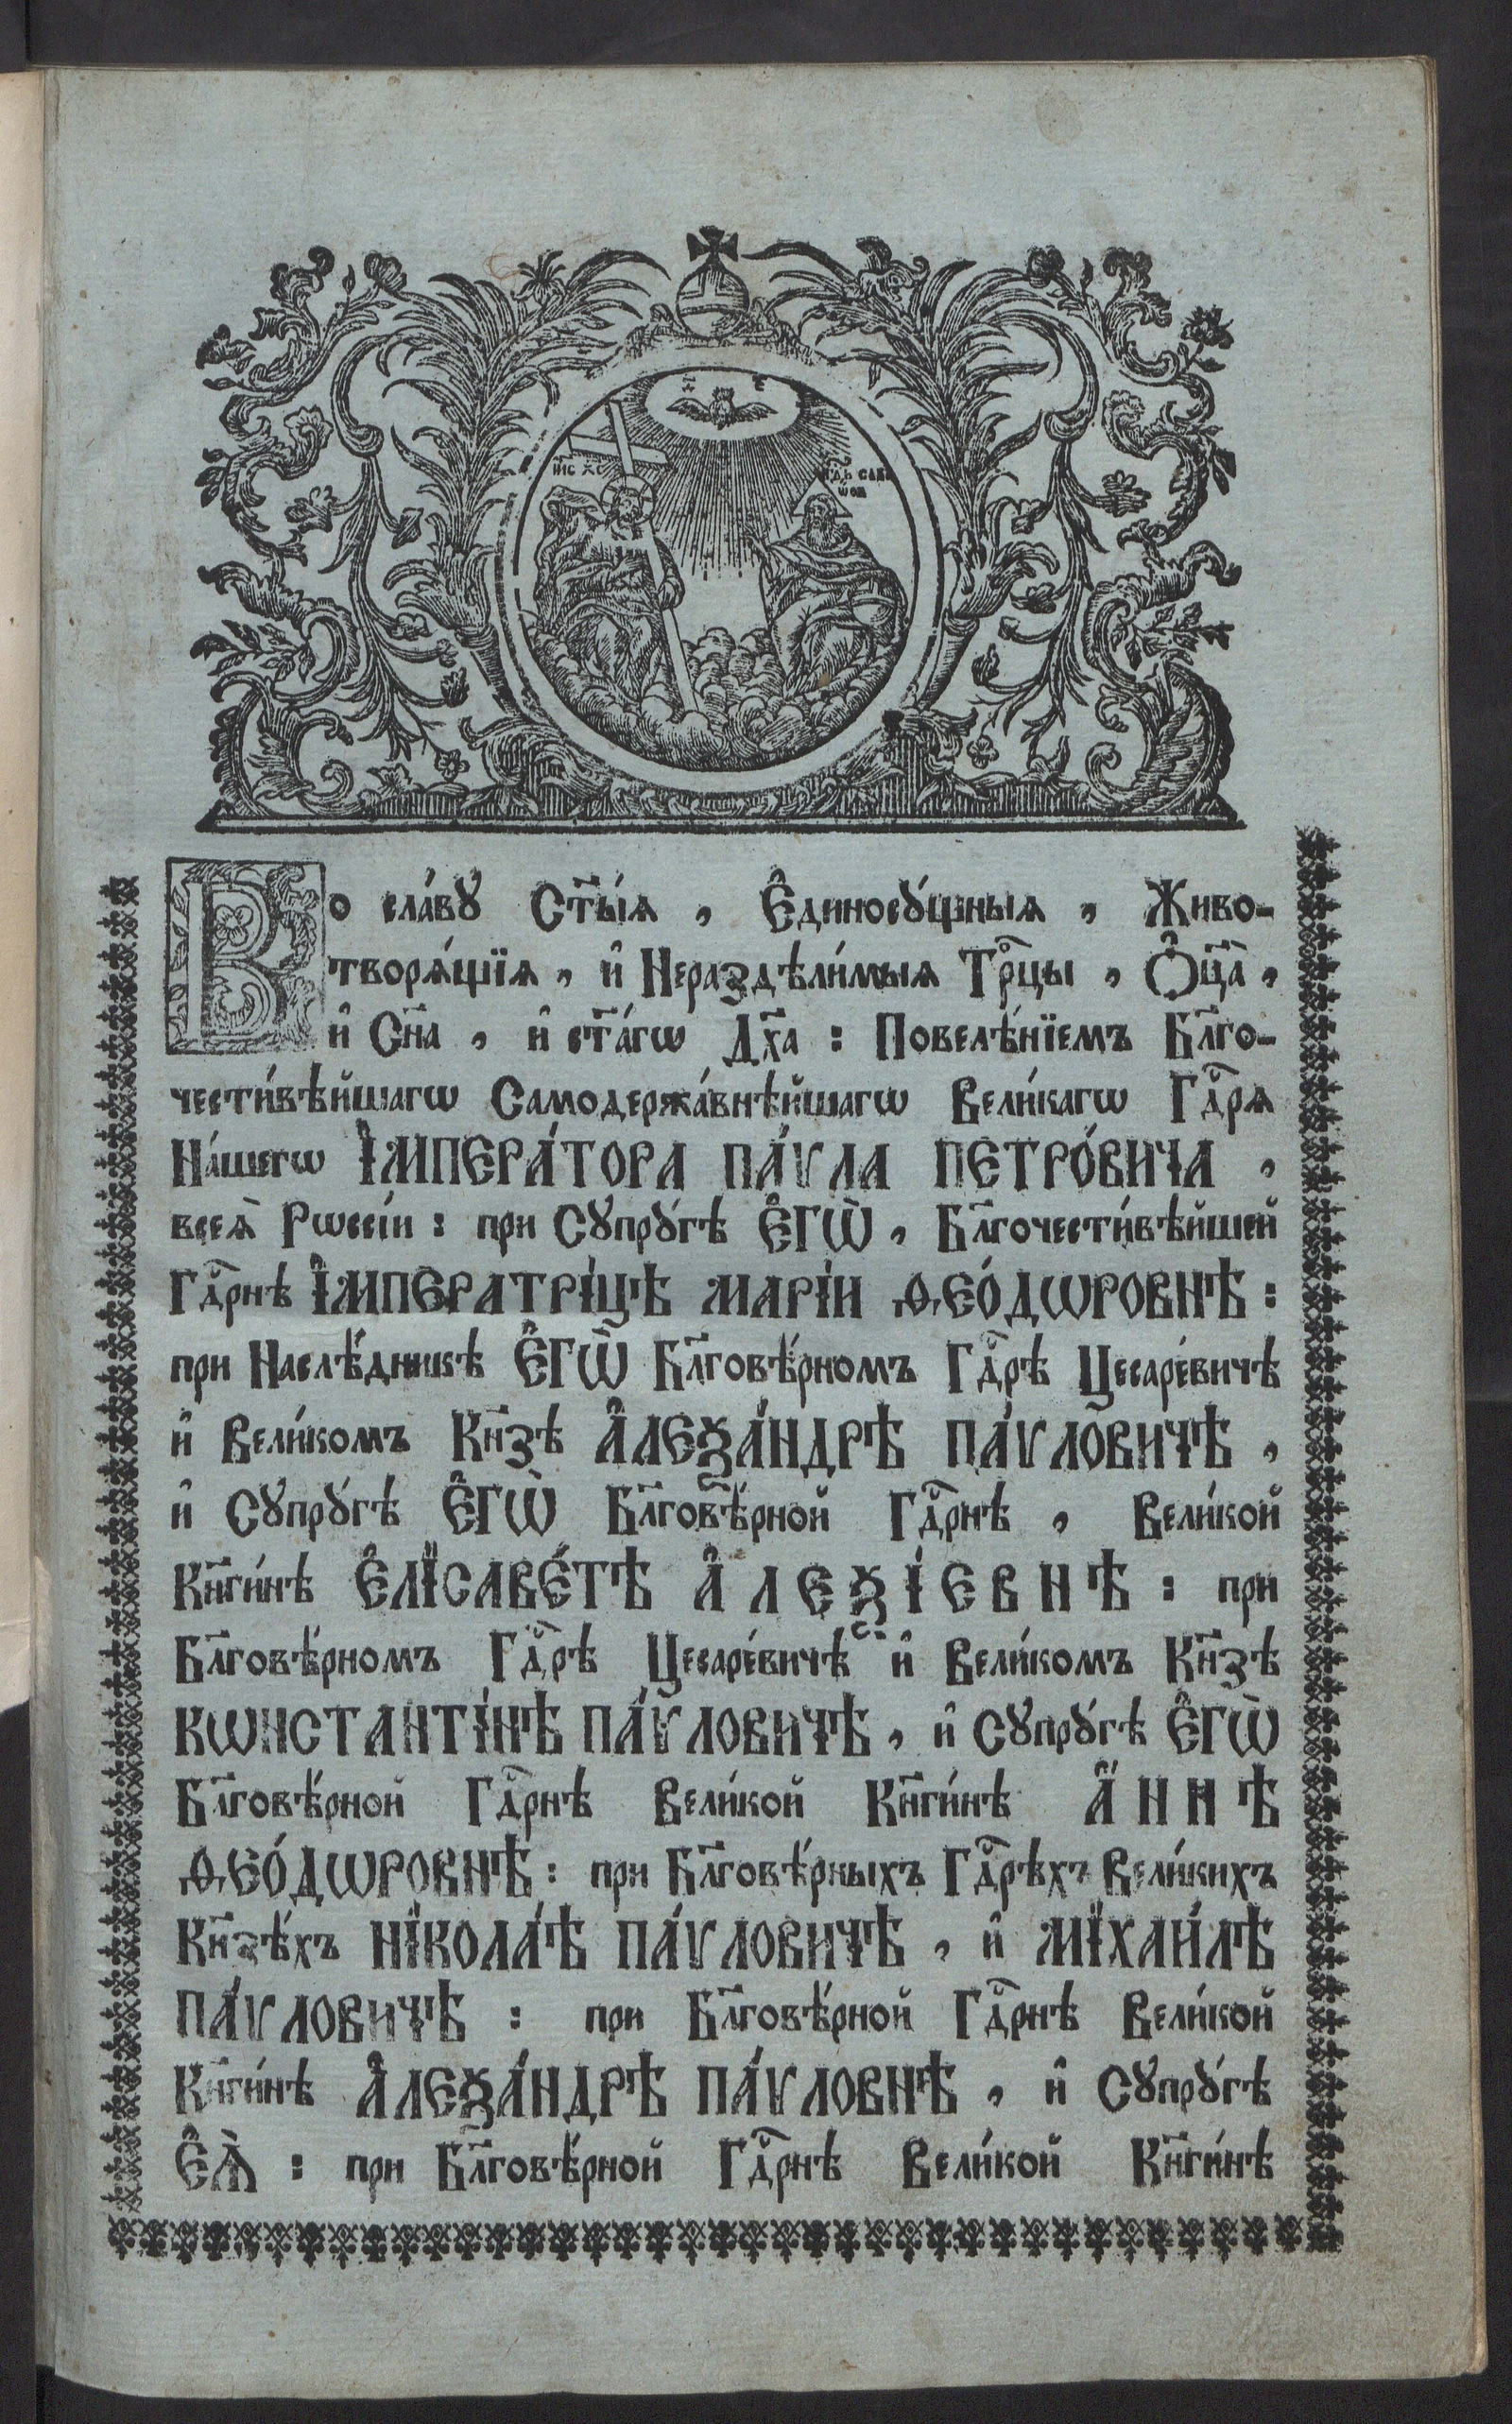 І҃ИС Х҃С
Во сла́вꙋ Ст҃ы́ѧ , Є҆диносꙋ́щныѧ , Живо-
творѧ́щїѧ , и҆ Нераздѣли́мыѧ Трⷪ҇цы , Ѻ҆ц҃а̀ ,
и҆ Сн҃а , и҆ ст҃а́гѡ Дх҃а : Повелѣ́нїемъ Бл҃го-
чести́вѣйшагѡ Самодержа́внѣйшагѡ Вели́кагѡ Гдⷭ҇рѧ
На́шегѡ І҆МПЕРА́ТОРА ПА́ѴЛА ПЕТРО́ВИЧА ,
всеѧ̀ Рѡссі́и : при Сꙋпрꙋ́гѣ Є҆ГѠ̀ , Бл҃гочести́вѣйшей
Гдⷭ҇рнѣ І҆МПЕРАТРІ́ЦѢ МАРІ́И ѲЕО́ДѠРОВНѢ :
при Наслѣ́дникѣ Є҆ГѠ̀ Бл҃говѣ́рномъ Гдⷭ҇рѣ Цесаре́вичѣ
и҆ Вели́комъ Кн҃зѣ А҆ЛЕѮА́НДРѢ ПА́ѴЛОВИЧѢ ,
и҆ Сꙋпрꙋ́гѣ Є҆ГѠ̀ Бл҃говѣ́рной Гдⷭ҇рнѣ , Вели́кой
Кн҃ги́нѣ Є҆ЛІСАВЕ́ТѢ А҆ЛЕѮІ́ЕВНѢ : при
Бл҃говѣ́рномъ Гдⷭ҇рѣ Цесаре́вичѣ и҆ Вели́комъ Кн҃зѣ
КѠНСТАНТІ́НѢ ПА́ѴЛОВИЧѢ , и҆ Сꙋпрꙋ́гѣ Є҆ГѠ̀
Бл҃говѣ́рной Гдⷭ҇рнѣ Вели́кой Кн҃ги́нѣ А҆́ННѢ
ѲЕО́ДѠРОВНѢ : при Бл҃говѣ́рныхъ Гдⷭ҇рѣхъ Вели́кихъ
Кн҃зѣ́хъ НІКОЛА́Ѣ ПА́ѴЛОВИЧѢ , и҆ МІХАИ́ЛѢ
ПА́ѴЛОВИЧѢ : при Бл҃говѣ́рной Гдⷭ҇рнѣ Вели́кой
Кн҃ги́нѣ А҆ЛЕѮА́НДРѢ ПА́ѴЛОВНѢ , и҆ Сꙋпрꙋ́гѣ
Є҆Ѧ̀ : при Бл҃говѣ́рной Гдⷭ҇рнѣ Вели́кой Кн҃ги́нѣ